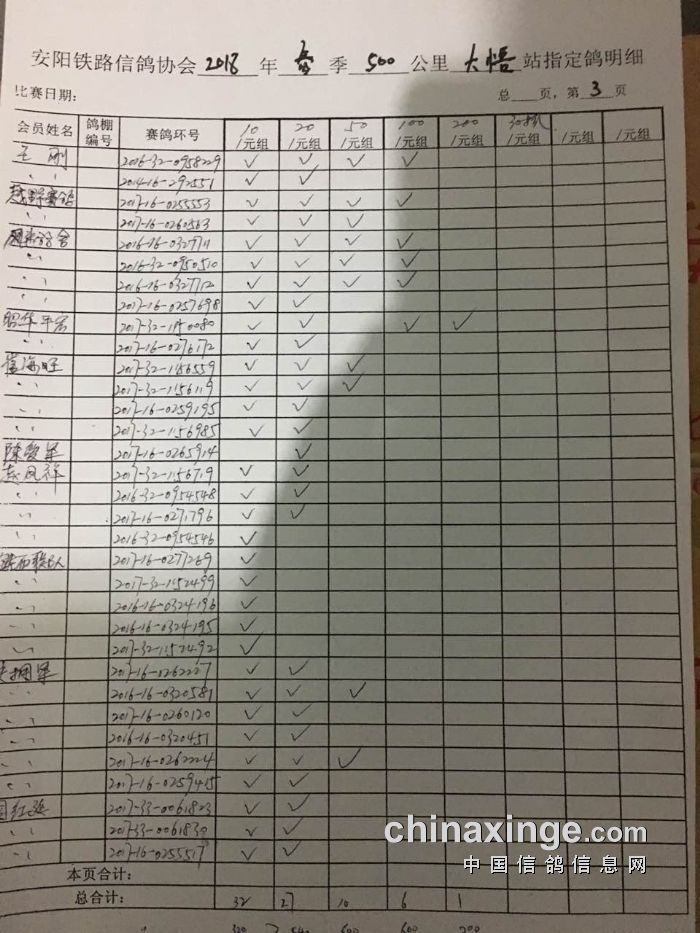 安阳铁路信鸽协会 2018 年 春 季 500 公里 大悟 站指定鸽明细
比赛日期： 总 页，第 3 页
会员姓名 鸽棚编号 赛鸽环号 10/1元组 20/1元组 50/1元组 100/1元组 200/1元组 /1元组 /1元组 /1元组
王刚 2016-32-0958229 ✓ ✓ ✓ ✓
〃 2014-16-292551 ✓ ✓
2017-16-0255553 ✓ ✓ ✓ ✓
〃 2017-16-0260563 ✓ ✓ ✓
2016-16-0327711 ✓ ✓ ✓ ✓
〃 2016-32-0950510 ✓ ✓ ✓ ✓
〃 2016-16-0327712 ✓ ✓ ✓ ✓
〃 2017-16-0257698 ✓ ✓
2017-32-1140080 ✓ ✓ ✓ ✓
〃 2017-16-0276172 ✓ ✓
崔海旺 2017-32-1156559 ✓ ✓ ✓
〃 2017-32-1156119 ✓ ✓ ✓
〃 2017-16-0259195 ✓ ✓
〃 2017-32-1156985 ✓ ✓
2017-16-0265914 ✓
2017-32-1156719 ✓ ✓
〃 2016-32-0954548 ✓ ✓
〃 2017-16-0271796 ✓ ✓
〃 2016-32-0954546 ✓
2017-16-0277269 ✓
〃 2017-32-1152499 ✓
〃 2016-16-0324196 ✓
〃 2016-16-0324195 ✓
〃 2017-32-1152492 ✓
2017-16-0262227 ✓ ✓
〃 2016-16-0320581 ✓ ✓ ✓
〃 2017-16-0260120 ✓ ✓
〃 2016-16-0320451 ✓ ✓
〃 2017-16-0262224 ✓ ✓ ✓
〃 2017-16-0259415 ✓ ✓
2017-33-0061823 ✓ ✓
〃 2017-33-0061830 ✓ ✓
〃 2017-16-0255517 ✓ ✓
本页合计：
总合计： 32 27 10 6 1
320 540 600 200
chinaxinge.com
中国信鸽信息网